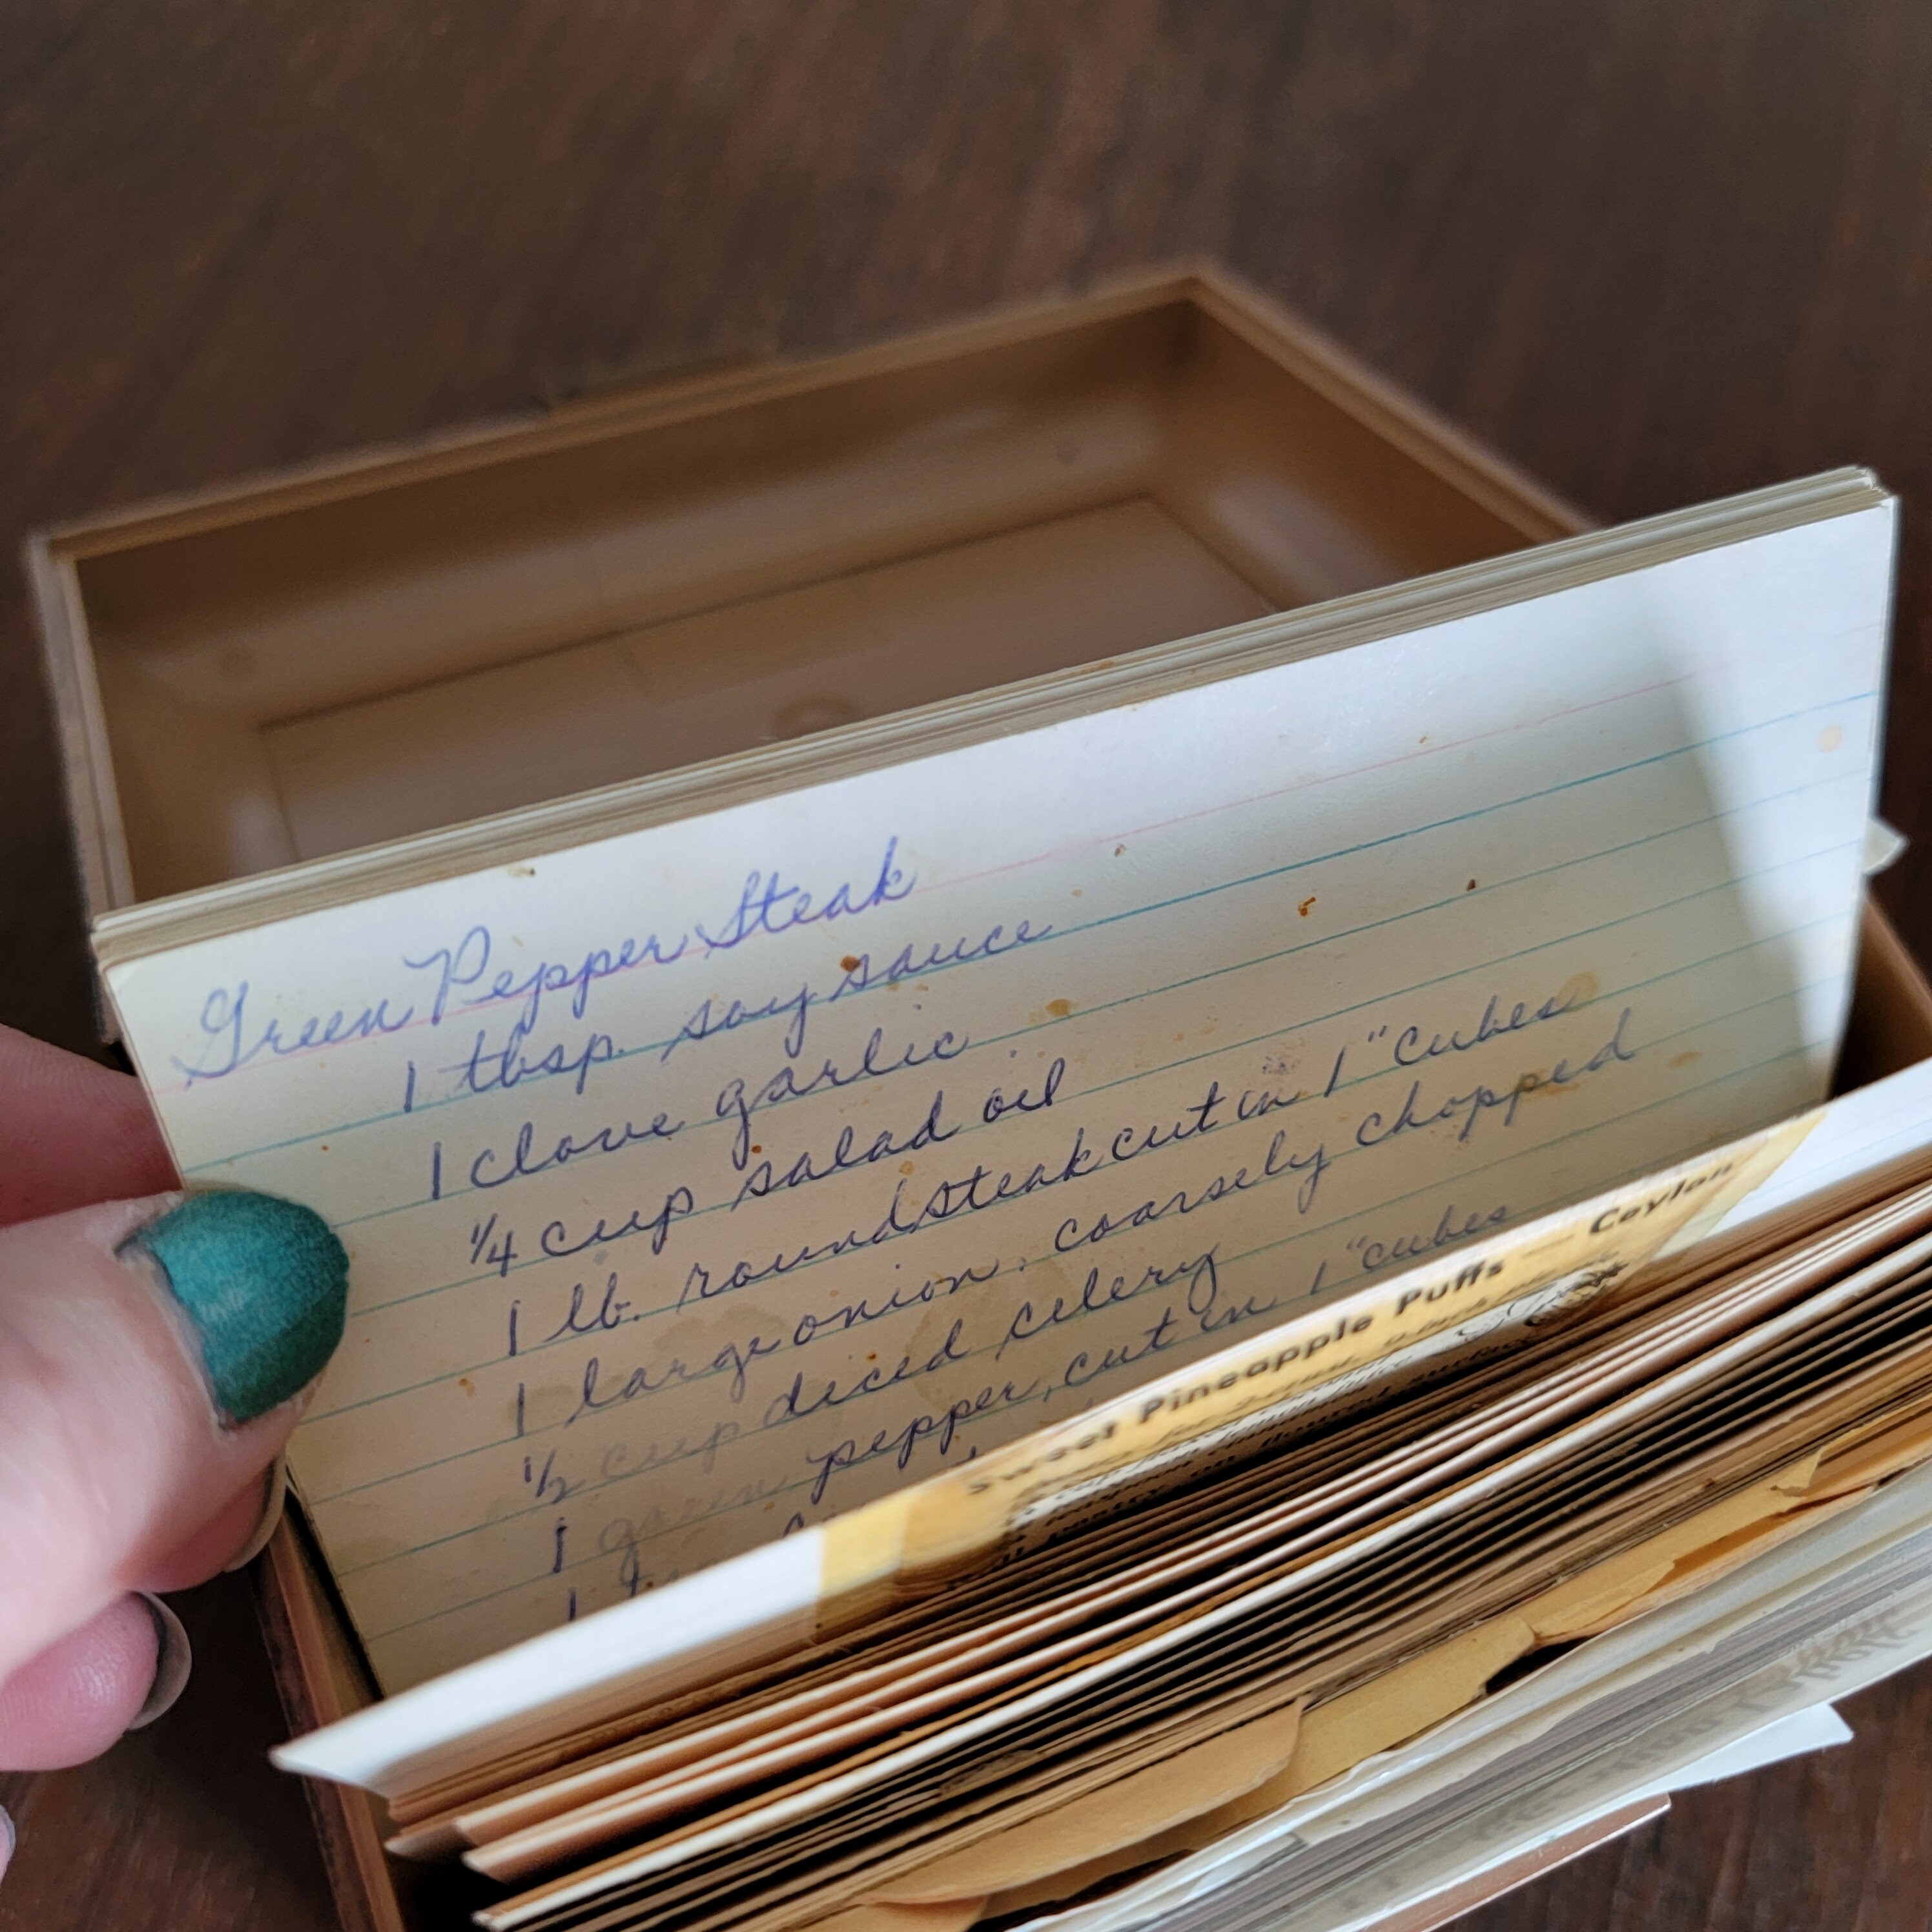 Green Pepper Steak
1 tbsp. soy sauce
1 clove garlic
1/4 cup salad oil
1 lb. round steak cut in 1" cubes
1 large onion, coarsely chopped
1/2 cup diced celery
1 green pepper, cut in 1" cubes
1
Sweet Pineapple Puffs — Ceylon